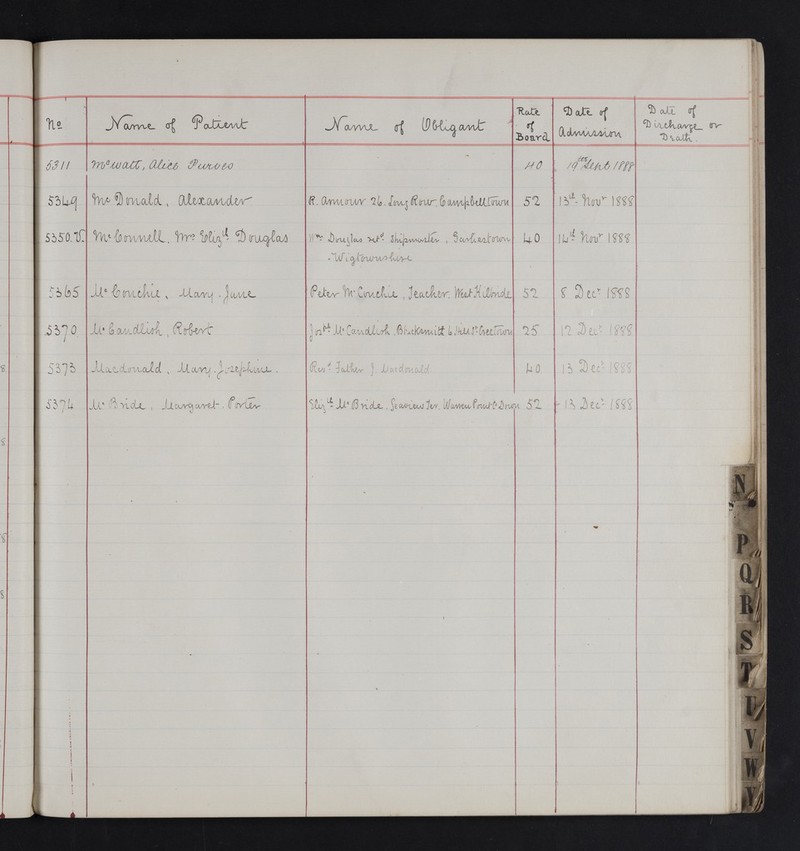 No Name of Patient Name of Obligant Rate of Board Date of Admission Date of Discharge or Death
5311 McWatt, Alice Purves 40 19th Sept 1888
5349 McDonald, Alexander R. Armour 26. Long Row. Campbelltown 52 13th Novr 1888
5350.V. McConnell, Mrs Elizth Douglas Wm Douglas retd Shipmaster, Garliestown 40 14th Novr 1888
Wigtownshire
5365 McConchie, Mary. Jane Peter McConchie, Teacher. West Kilbride 52 8 Decr 1888
5370 McCandlish, Robert McCandlish, Blacksmith Creetown 25 12 Decr 1888
5373 Macdonald, Mary. Josephine. Revd Father J. Macdonald 40 13 Decr 1888
5374 McBride. Margaret. Porter Elizth McBride. Seaview Ter. Warren Point Co Down 52 13 Decr 1888
8
8
8
8
N
P
Q
R
S
T
U
V
W
Y